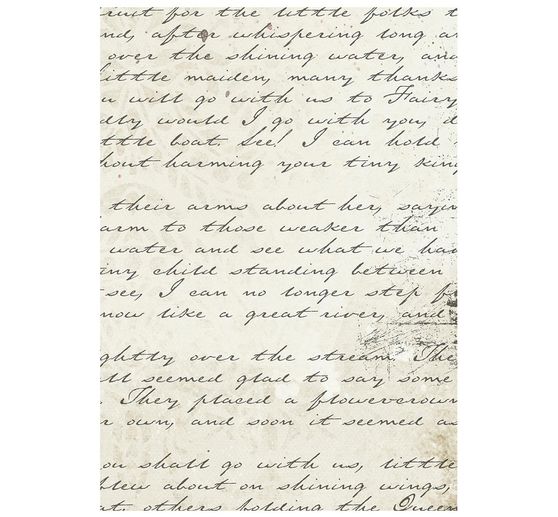 ruit for the little folks t
nd, after whispering long a
over the shining water, and
ittle maiden, many thanks
u will go with us to Fairy
dly would I go with you, d
ttle boat. See! I can hold
hout harming your tiny king
their arms about her, sayin
arm to those weaker than
water and see what we ha
iny child standing between
see, I can no longer step f
now like a great river, and
ghtly over the stream. The
ll seemed glad to say some
. They placed a flowercrow
r own, and soon it seemed as
ou shall go with us, little
flew about on shining wings,
at, others holding the Queen